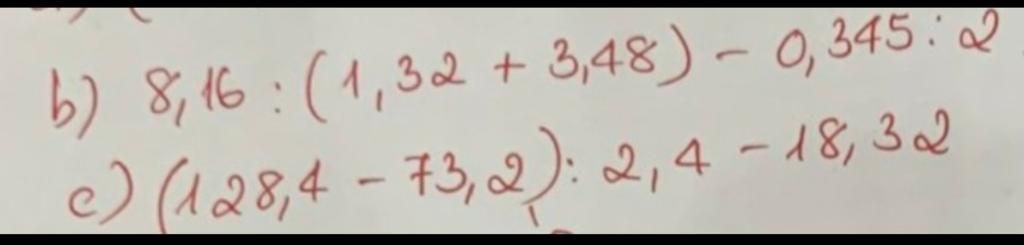 b) 8,16 : (1,32 + 3,48) - 0,345 : 2
c) (128,4 - 73,2) : 2,4 - 18,32